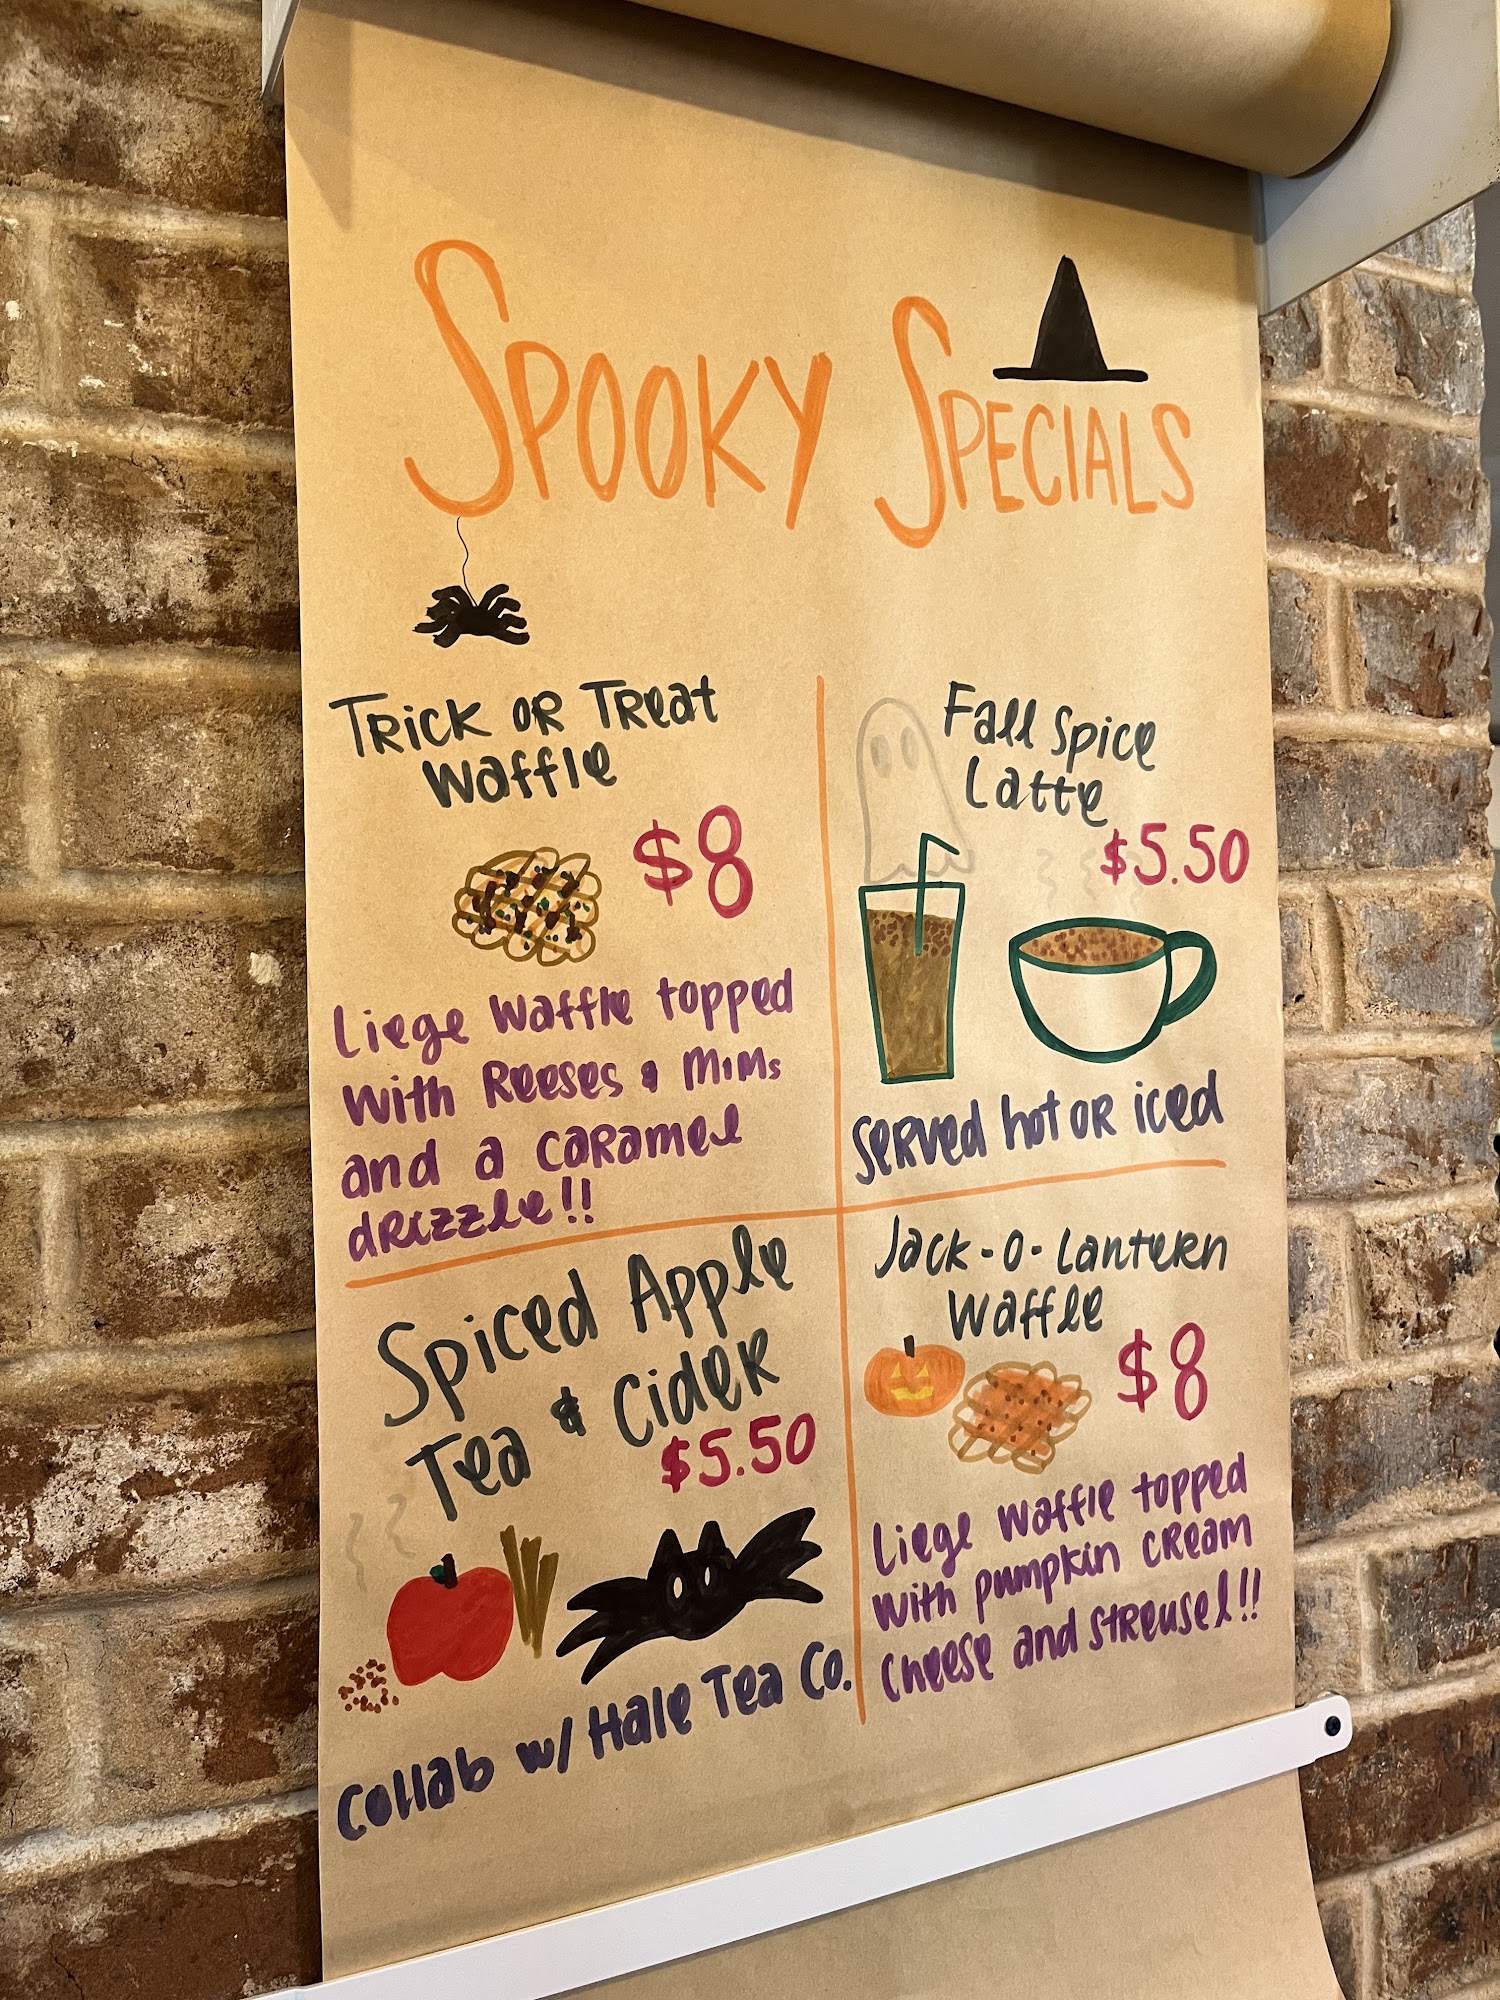 SPOOKY SPECIALS
TRick OR TReat
Waffle
$8
Liege Waffle topped
with Reeses & M&Ms
and a caRamel
dRizzle!!
Fall Spice
Latte
$5.50
SeRved hot OR iced
Spiced Apple
Tea & CideR
$5.50
Collab w/ Hale Tea Co.
Jack-O-LanteRn
Waffle
$8
Liege Waffle topped
with pumpkin cReam
cheese and stReusel!!